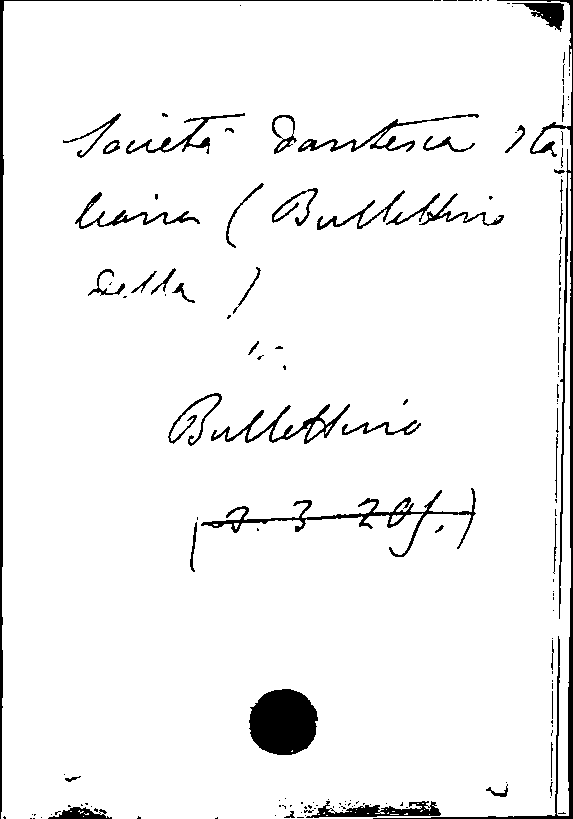 Società Dantesca Ita
liana (Bullettino
della)
v.
Bullettino
(2. 3 20f.)